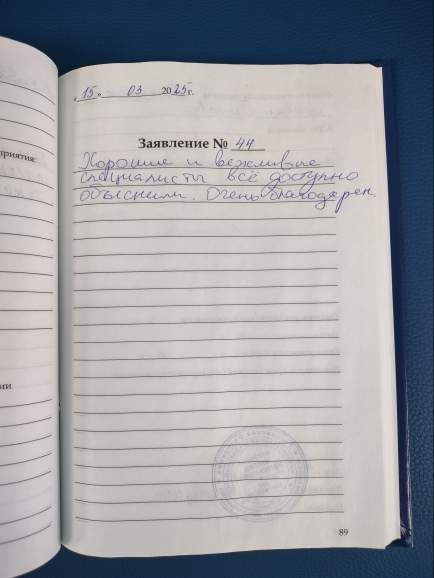 «15» 03 2025 г.
приятия:
Заявление № 44
Хорошие и вежливые
специалисты всё доступно
объяснили. Очень благодарен.
ии
89